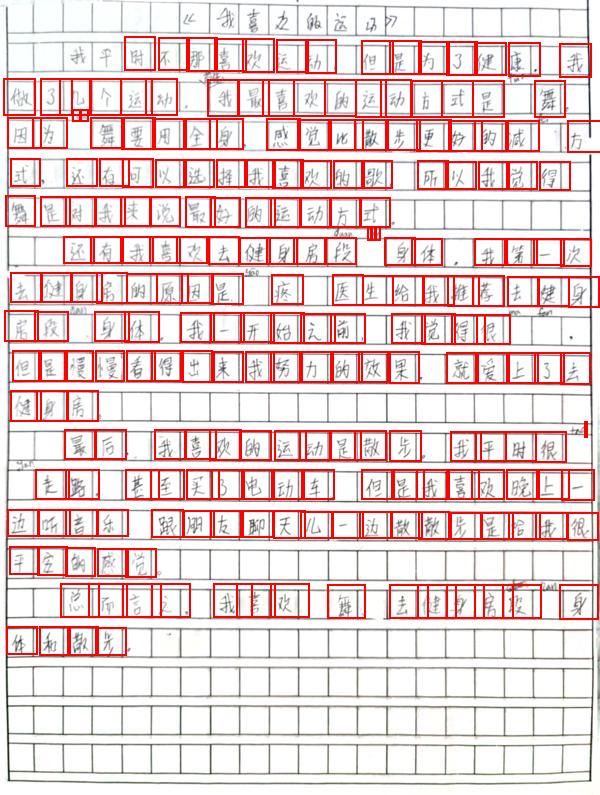 《我喜欢的运动》
我平时不那喜欢运动 但是为了健康，我
做了几个运动。我最喜欢的运动方式是 舞。
因为 舞要用全身，感觉比散步更好的减 方
式，还有可以选择我喜欢的歌。所以我觉得
舞是对我来说最好的运动方式。
还有我喜欢去健身房段 身体。我第一次
去健身房的原因是 疼 医生给我推荐去健身
房段 身体。我一开始之前，我觉得很 。
但是慢慢看得出来我努力的效果。就爱上了去
健身房。
最后，我喜欢的运动是散步。我平时很
走路，甚至买了电动车 但是我喜欢晚上一
边听音乐 跟朋友聊天儿一边散散步是给我很
平安的感觉。
总而言之，我喜欢 舞，去健身房段 身
体和散步。